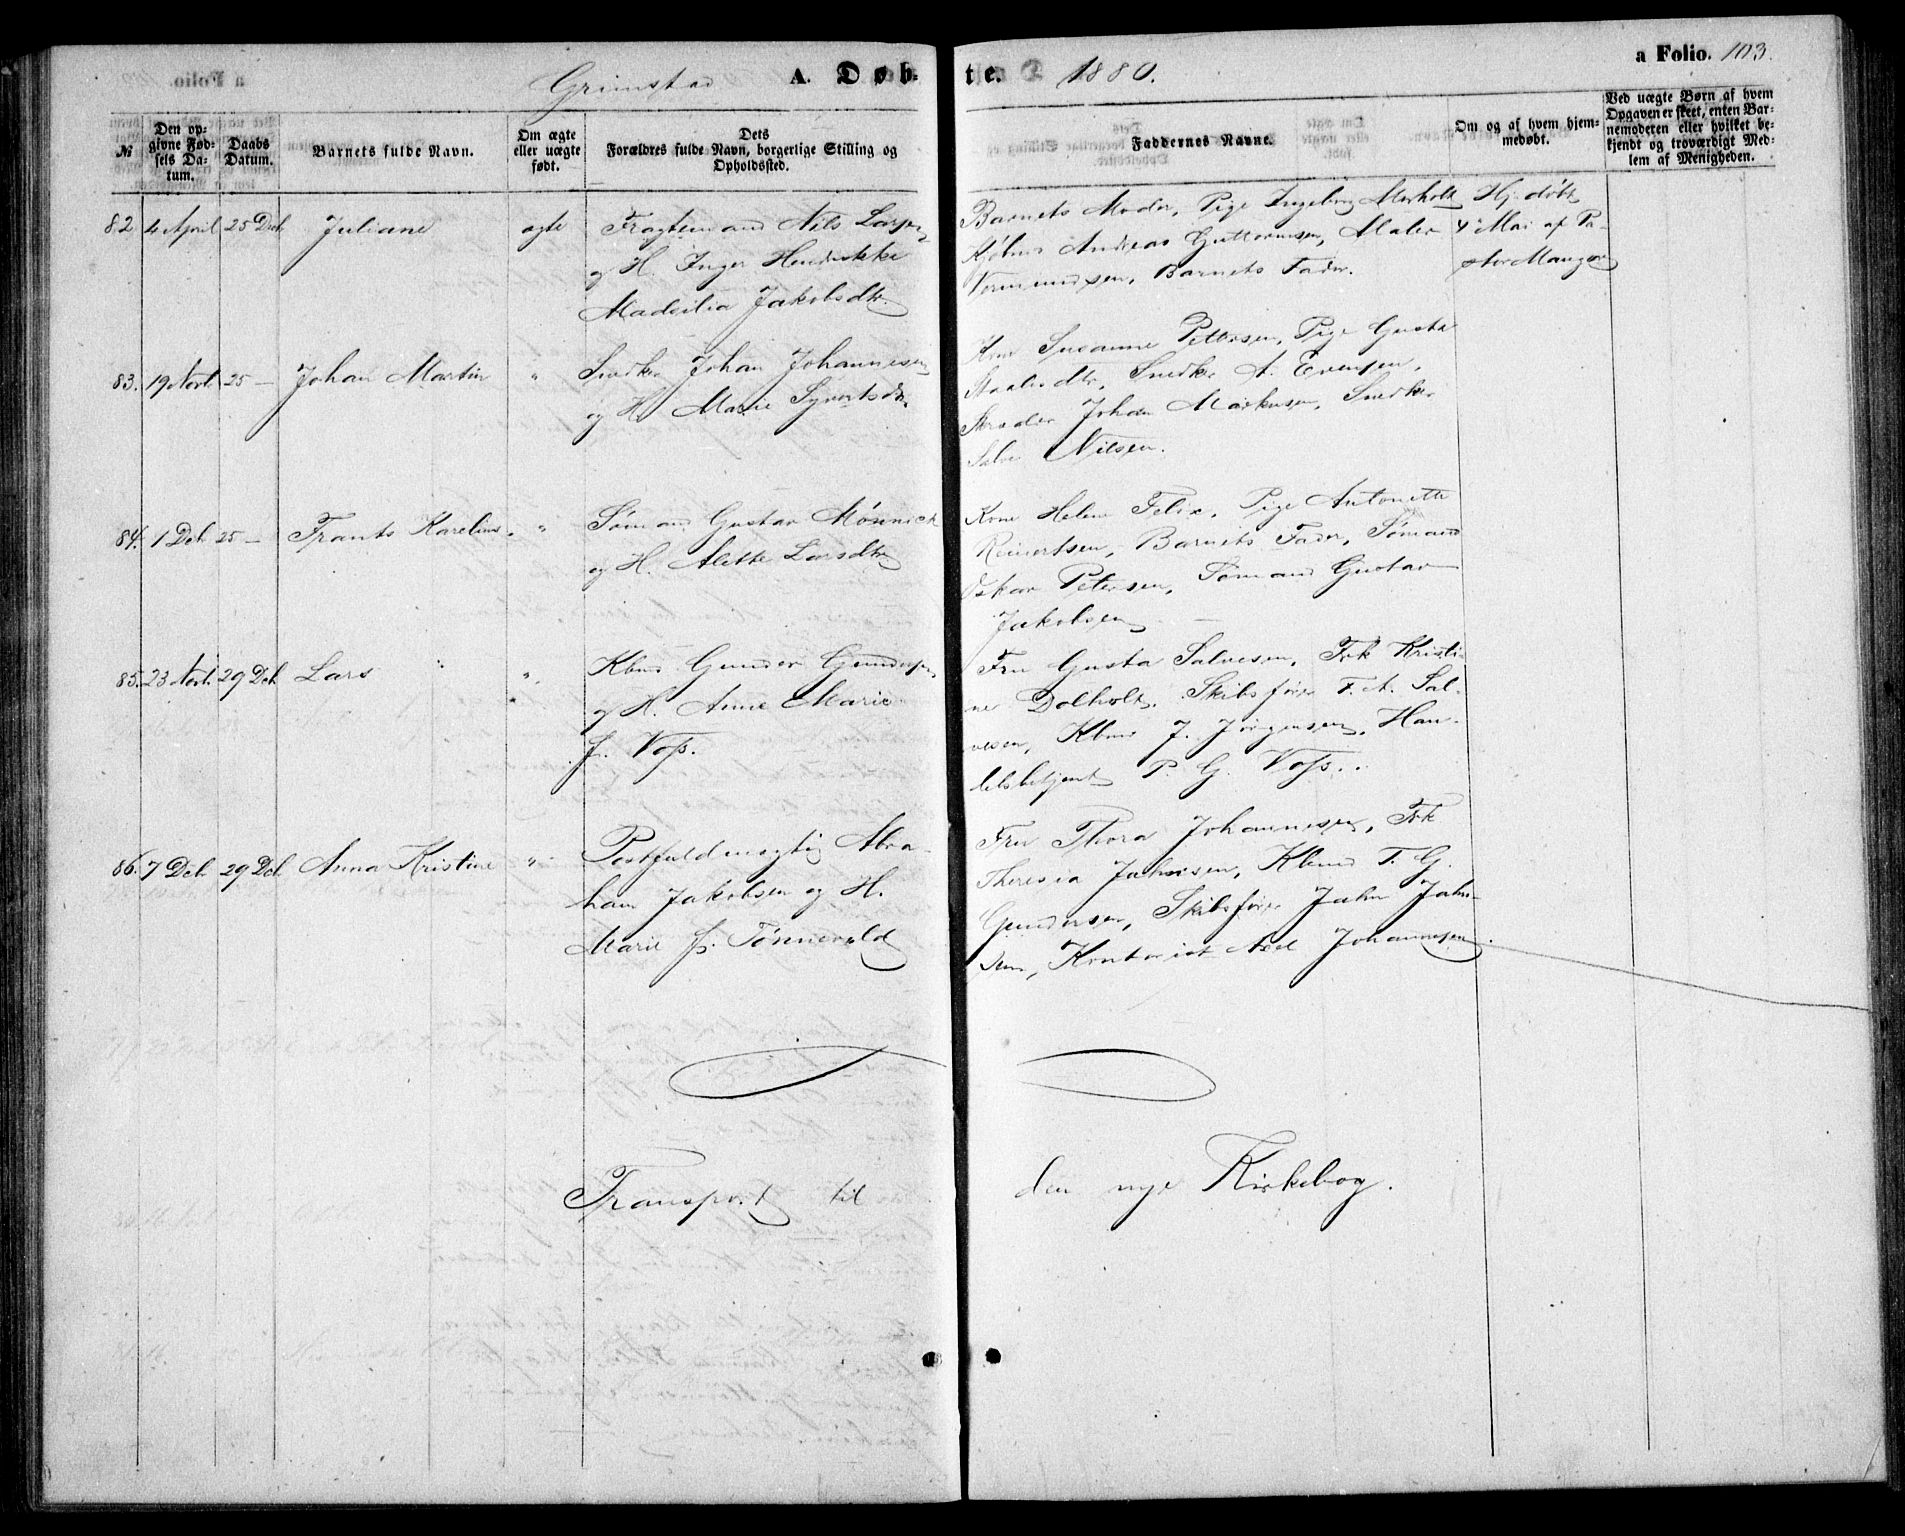 Grimstad A. Døb-
te. 1880.
a Folio. 103.
№
Den op-
givne Fød-
sels Da-
tum.
Daabs
Datum.
Barnets fulde Navn.
Om ægte
eller uægte
født.
Dets
Forældres fulde Navn, borgerlige Stilling og
Opholdssted.
Faddernes Navne.
Om og af hvem hjem-
medøbt.
Ved uægte Børn af hvem
Opgaven er skeet, enten Bar-
nemoderen eller hvilket be-
kjendt og troværdigt Med-
lem af Menigheden.
82 4 April 25 Dec Juliane ægte
Fragtemand Nils Larsen
og H. Inger Hendrikke
Jakobsdtr.
Barnets Moder, Pige Ingeborg Morholt
Andreas Guttormsen, Maler
Vormundsen, Barnets Fader.
Hj. døbt
4 Mai af Pa-
stor
83. 19 Novb. 25 — Johan Martin "
Snedker Johan Johannesen
og H. Marie Syvertsdtr.
Kone Susanne Pettersen, Pige Gusta
Snedker A. Evensen,
Johan Markusen, Snedker
Salve Nilsen.
84. 1 Dec 25 — Frants Karelius. "
Sømand Gustav Mønnick
og H. Alette Larsdtr
Kone Helene Felix, Pige Antonette
Reinertsen, Barnets Fader, Sømand
Oskar Petersen, Sømand Gustav
Jakobsen —
85. 23 Novb. 29 Dec Lars "
Kbmd Gunder Gundersen
og H. Anne Marie
f. Voss.
Fru Gusta Salvesen, Frk Kristi-
ne Dolholt, Skibsfører F. A. Sal-
vesen, Kbmd J. Jørgensen, Han-
delsbetjent P. G. Voss.
86. 7 Dec. 29 Dec Anna Kristine "
Postfuldmægtig Abra-
ham Jakobsen og H.
Marie f. Tønnevold
Fru Thora Johannesen, Frk
Theresia Jahnsen, Kbmd T. G.
Gundersen, Skibsfører Jahn Jahn-
sen, Kontorist Axel Johannesen.
Transport til
den nye Kirkebog.